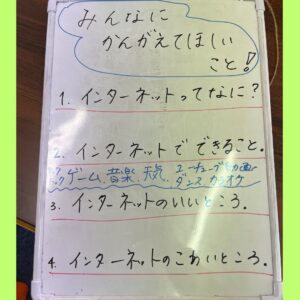 みんなに
かんがえてほしい
こと!
1. インターネットってなに?
2. インターネットで できること。
ゲーム、音楽、天気、ユーチューブ動画
ダンス カラオケ
3. インターネットのいいところ。
4. インターネットのこわいところ。